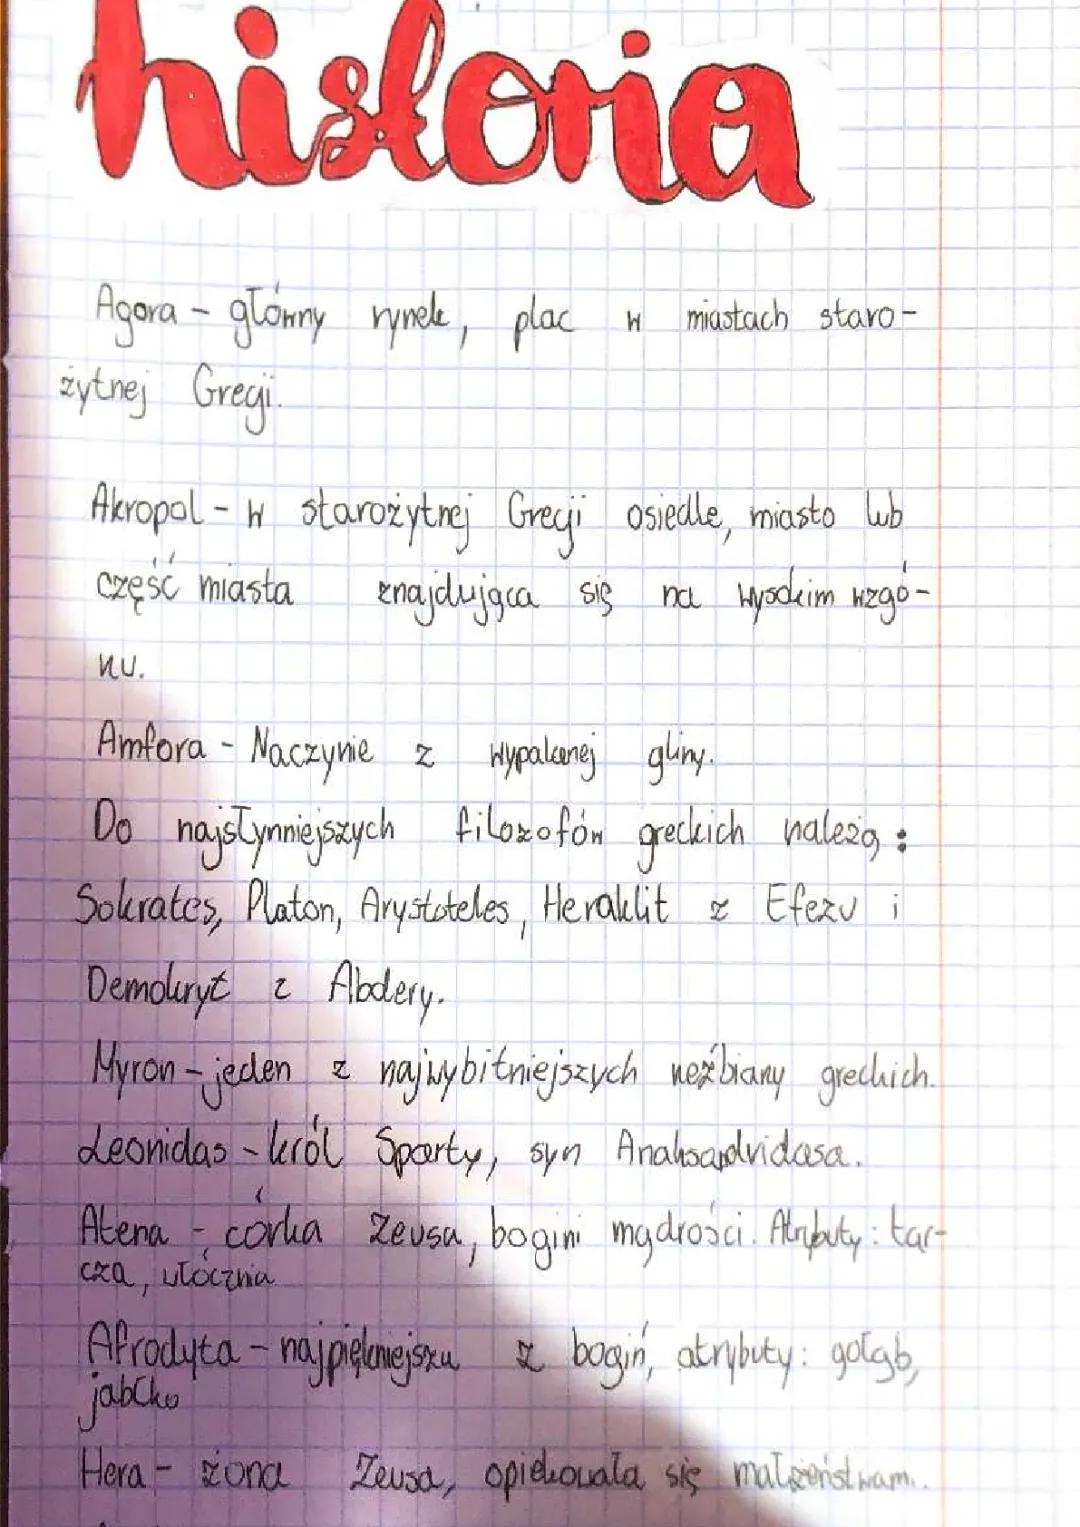 historia
Agora - główny rynek, plac w miastach staro-
żytnej Gregi.
Akropol - w starożytnej Grecji osiedle, miasto lub
część miasta znajdująca się na wysokim wzgó-
rzu.
Amfora - Naczynie z wypalanej gliny.
Do najsłynniejszych filozofów greckich należą :
Sokrates, Platon, Arystoteles, Heraklit z Efezu i
Demokryt z Abdery.
Myron - jeden z najwybitniejszych greckich.
Leonidas - król Sparty, syn
Atena - córka Zeusa, bogini mądrości. Atrybuty : tar-
cza, włócznia
Afrodyta - z bogiń, atrybuty: gołąb,
jabłko
Hera - żona Zeusa, opiekowała się małżeństwam.